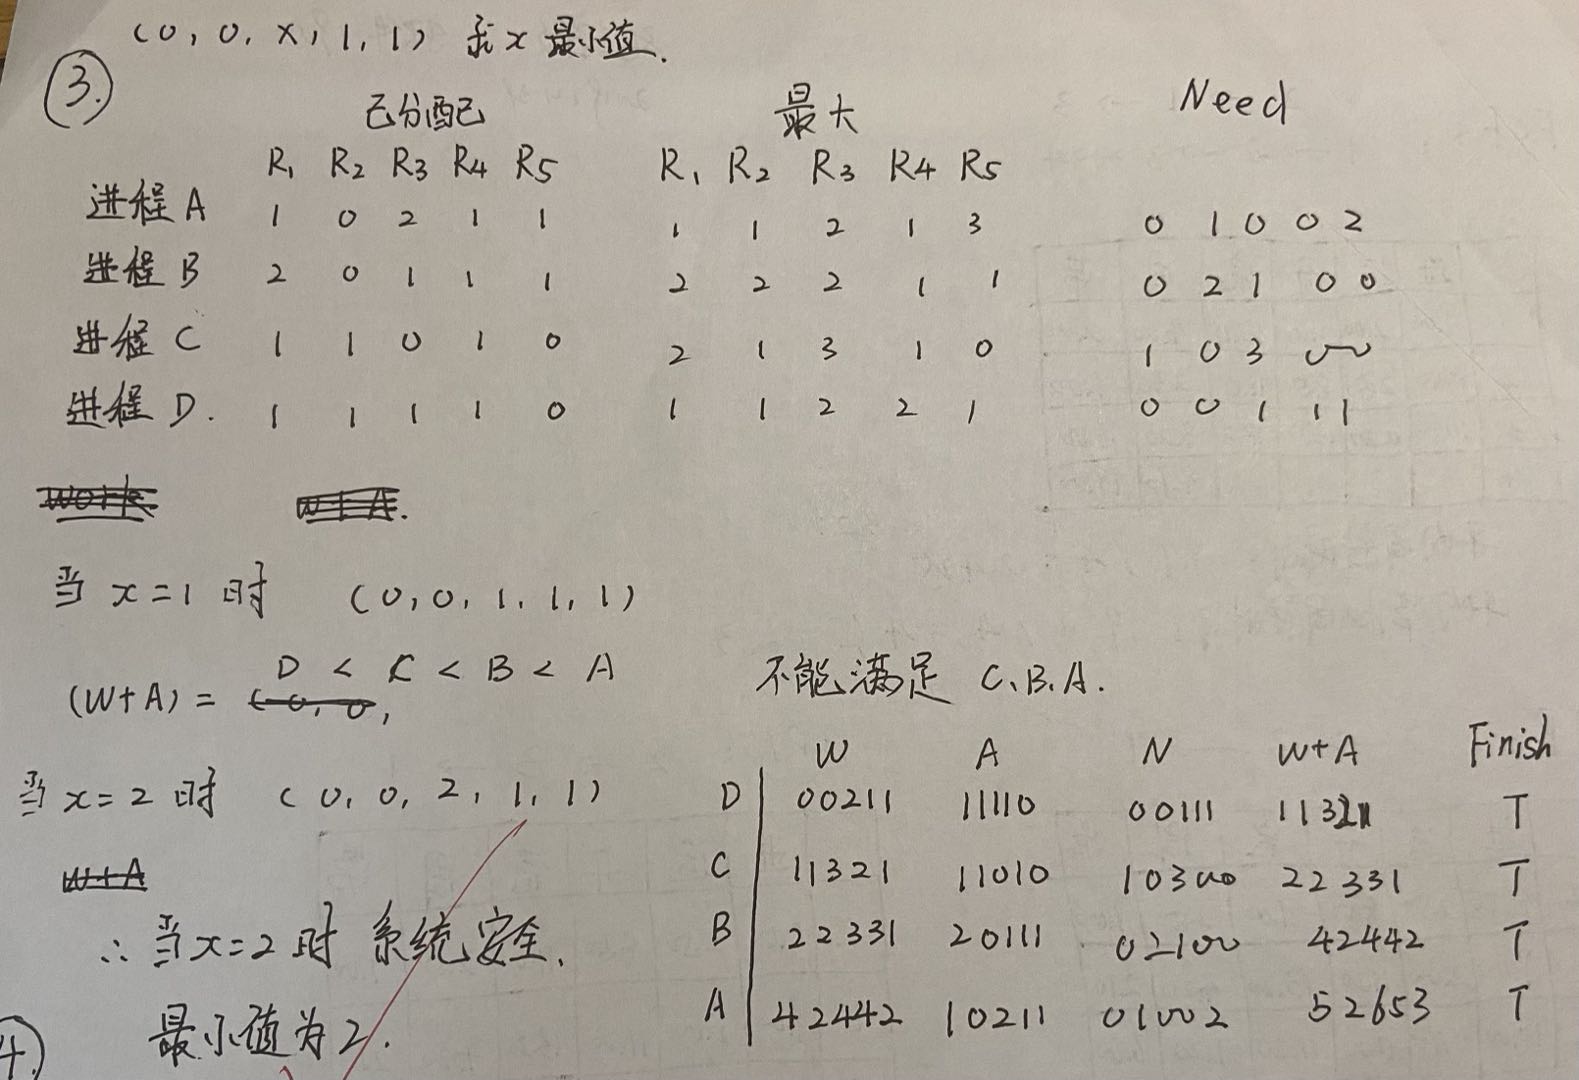 (0, 0, x, 1, 1) 求x最小值.
③.
已分配 最大 Need
R1 R2 R3 R4 R5 R1 R2 R3 R4 R5
进程A 1 0 2 1 1 1 1 2 1 3 0 1 0 0 2
进程B 2 0 1 1 1 2 2 2 1 1 0 2 1 0 0
进程C 1 1 0 1 0 2 1 3 1 0 1 0 3 0 0
进程D. 1 1 1 1 0 1 1 2 2 1 0 0 1 1 1
work W+A.
当 x=1 时 (0, 0, 1, 1, 1)
D < C < B < A 不能满足 C、B、A.
(W+A) = (0, 0,
W A N W+A Finish
当 x=2 时 (0, 0, 2, 1, 1) D 00211 11110 00111 11321 T
W+A C 11321 11010 10300 22331 T
∴ 当x=2时 系统安全. B 22331 20111 02100 42442 T
最小值为2. A 42442 10211 01002 52653 T
4.